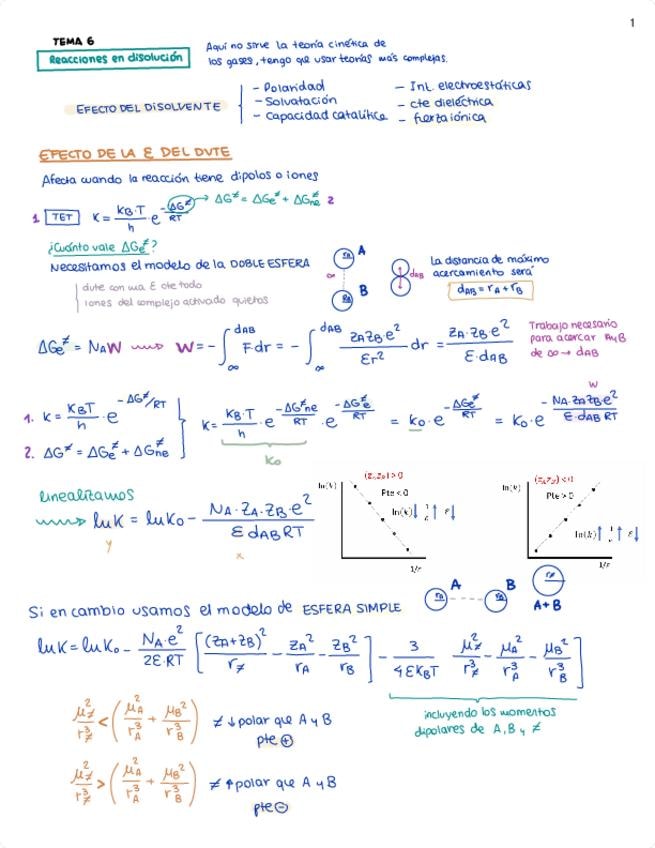 1
TEMA 6
Reacciones en disolución
Aquí no sirve la teoría cinética de
los gases, tengo que usar teorías más complejas.
EFECTO DEL DISOLVENTE
- Polaridad
- Solvatación
- Capacidad catalítica
- Int. electroestáticas
- cte dieléctrica
- fuerza iónica
EFECTO DE LA ε DEL DVTE
Afecta cuando la reacción tiene dipolos o iones
1 TET K = KB·T/h e^(-ΔG≠/RT) → ΔG≠ = ΔGe≠ + ΔGne≠ 2
¿Cuánto vale ΔGe≠?
Necesitamos el modelo de la DOBLE ESFERA
dvte con una ε cte todo
iones del complejo activado quietos
rA A
∞
rB B
dAB
La distancia de máximo
acercamiento será
dAB = rA + rB
ΔGe≠ = NAW ⟿ W = - ∫∞^dAB F·dr = - ∫∞^dAB ZAZBe²/εr² dr = ZA·ZB e²/ε·dAB
Trabajo necesario
para acercar A y B
de ∞ → dAB
1. K = KBT/h · e^(-ΔG≠/RT)
2. ΔG≠ = ΔGe≠ + ΔGne≠
K = KB·T/h · e^(-ΔG≠ne/RT) · e^(-ΔG≠e/RT) = k0·e^(-ΔGe≠/RT) = K0·e^(-NA·ZAZBe²/ε·dAB RT)
W
K0
linealizamos
⟿ ln K = ln K0 - NA·ZA·ZB·e²/ε dAB RT
y
x
ln(k)
(ZAZB) > 0
Pte < 0
ln(k)↓ 1/ε↑ ε↓
1/ε
ln(k)
(ZAZB) < 0
Pte > 0
ln(k)↑ 1/ε↑ ε↓
1/ε
Si en cambio usamos el modelo de ESFERA SIMPLE
rA A
rB B
r≠
A+B
ln K = ln K0 - NA·e²/2ε·RT [(ZA+ZB)²/r≠ - ZA²/rA - ZB²/rB] - 3/4εKBT μ≠²/r≠³ - μA²/rA³ - μB²/rB³]
incluyendo los momentos
dipolares de A, B y ≠
μ≠²/r≠³ < (μA²/rA³ + μB²/rB³) ≠ ↓ polar que A y B
pte ⊕
μ≠²/r≠³ > (μA²/rA³ + μB²/rB³) ≠ ↑ polar que A y B
pte ⊖